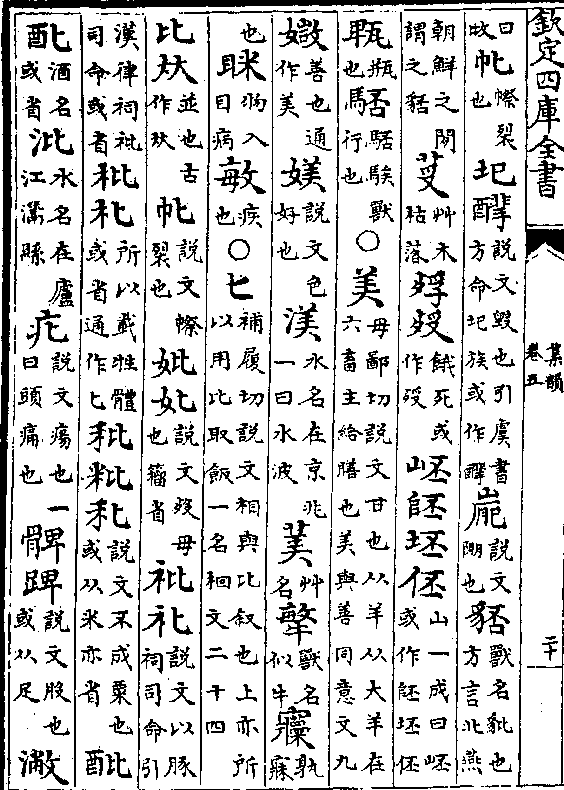 欽定四庫全書 集韻 卷五 二十
曰牧也㠲幒裂圮𨢑說文毁也引虞書方命圮族或作𨢑嶏說文㟴也𧳏獸名貔也方言北燕
朝鮮之間謂之𧳏芆艸木枯落殍㱽餓死或作㱽㟝𨸹坯伾山一成曰㟝或作𨸹坯伾
㼎瓶也𩢼騃獸行也○美母鄙切說文甘也从羊从大羊在六畜主給膳也美與善同意文九
媺善也通作美媄說文色好也渼水名在京兆一曰水波葿艸名㹃獸名似牛䆲孰寐
也眯物入目病敏疾也○匕補履切說文相與比叙也匕亦所以用比取飯一名柶文二十四
比夶並也古作夶㠲說文幒裂也妣𡚧說文殁母也籀省䃾礼說文以豚祠司命引
漢律祠祉司命或省枇朼所以載牲體或省通作匕秕粃𥝖說文不成粟也或从米亦省𨠔
酏酒名或省沘水名在廬江灊縣疕說文瘍也一曰頭痛也髀踔說文股也或从足㵒